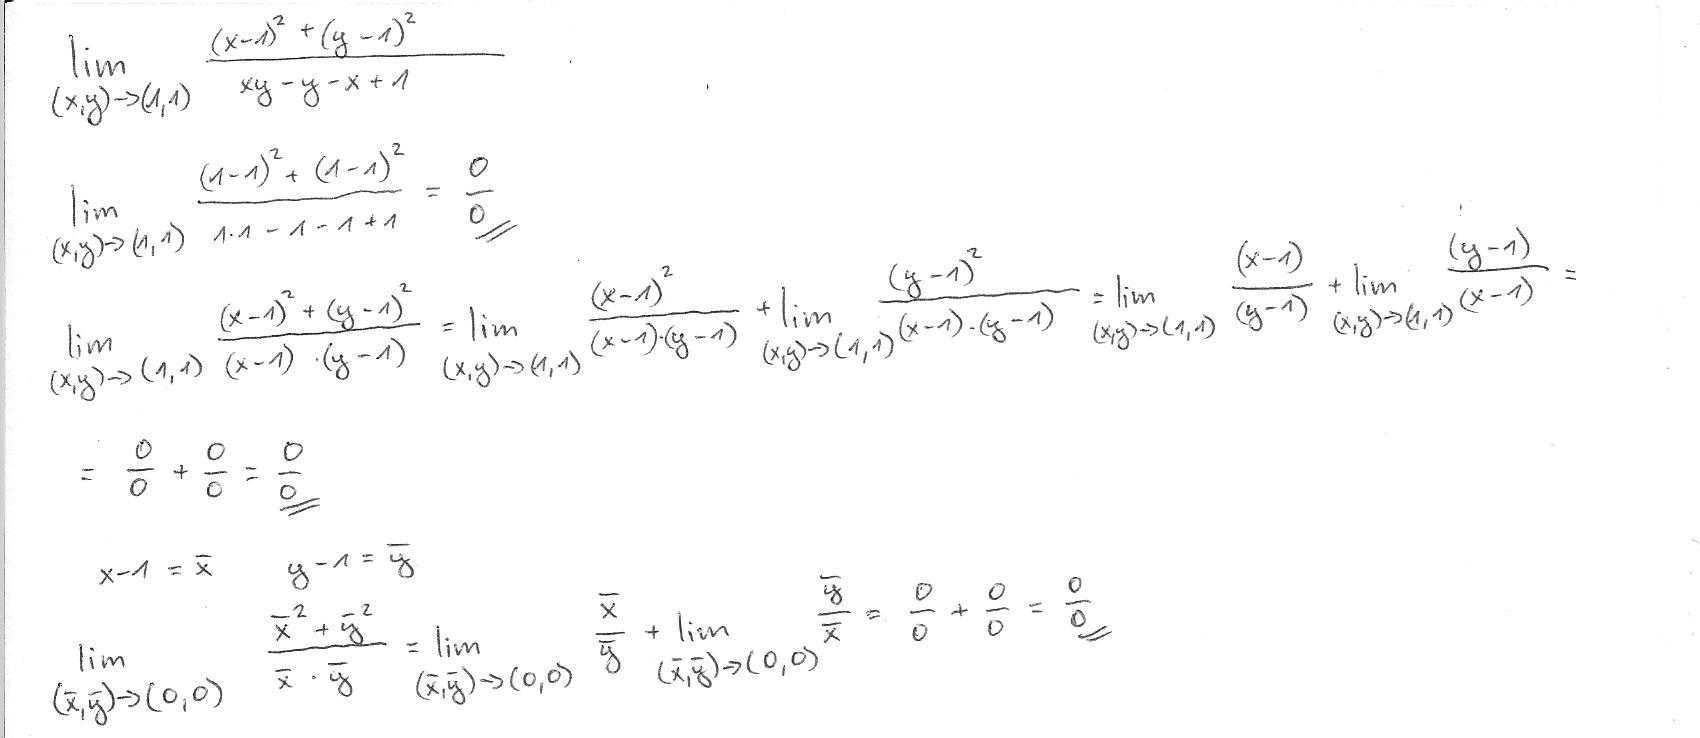 lim (x,y)→(1,1) ((x-1)² + (y-1)²)/(xy - y - x + 1)
lim (x,y)→(1,1) ((1-1)² + (1-1)²)/(1·1 - 1 - 1 + 1) = 0/0
lim (x,y)→(1,1) ((x-1)² + (y-1)²)/((x-1)·(y-1)) = lim (x,y)→(1,1) (x-1)²/((x-1)·(y-1)) + lim (x,y)→(1,1) (y-1)²/((x-1)·(y-1)) = lim (x,y)→(1,1) (x-1)/(y-1) + lim (x,y)→(1,1) (y-1)/(x-1) =
= 0/0 + 0/0 = 0/0
x-1 = x̄ y-1 = ȳ
lim (x̄,ȳ)→(0,0) (x̄² + ȳ²)/(x̄·ȳ) = lim (x̄,ȳ)→(0,0) x̄/ȳ + lim (x̄,ȳ)→(0,0) ȳ/x̄ = 0/0 + 0/0 = 0/0